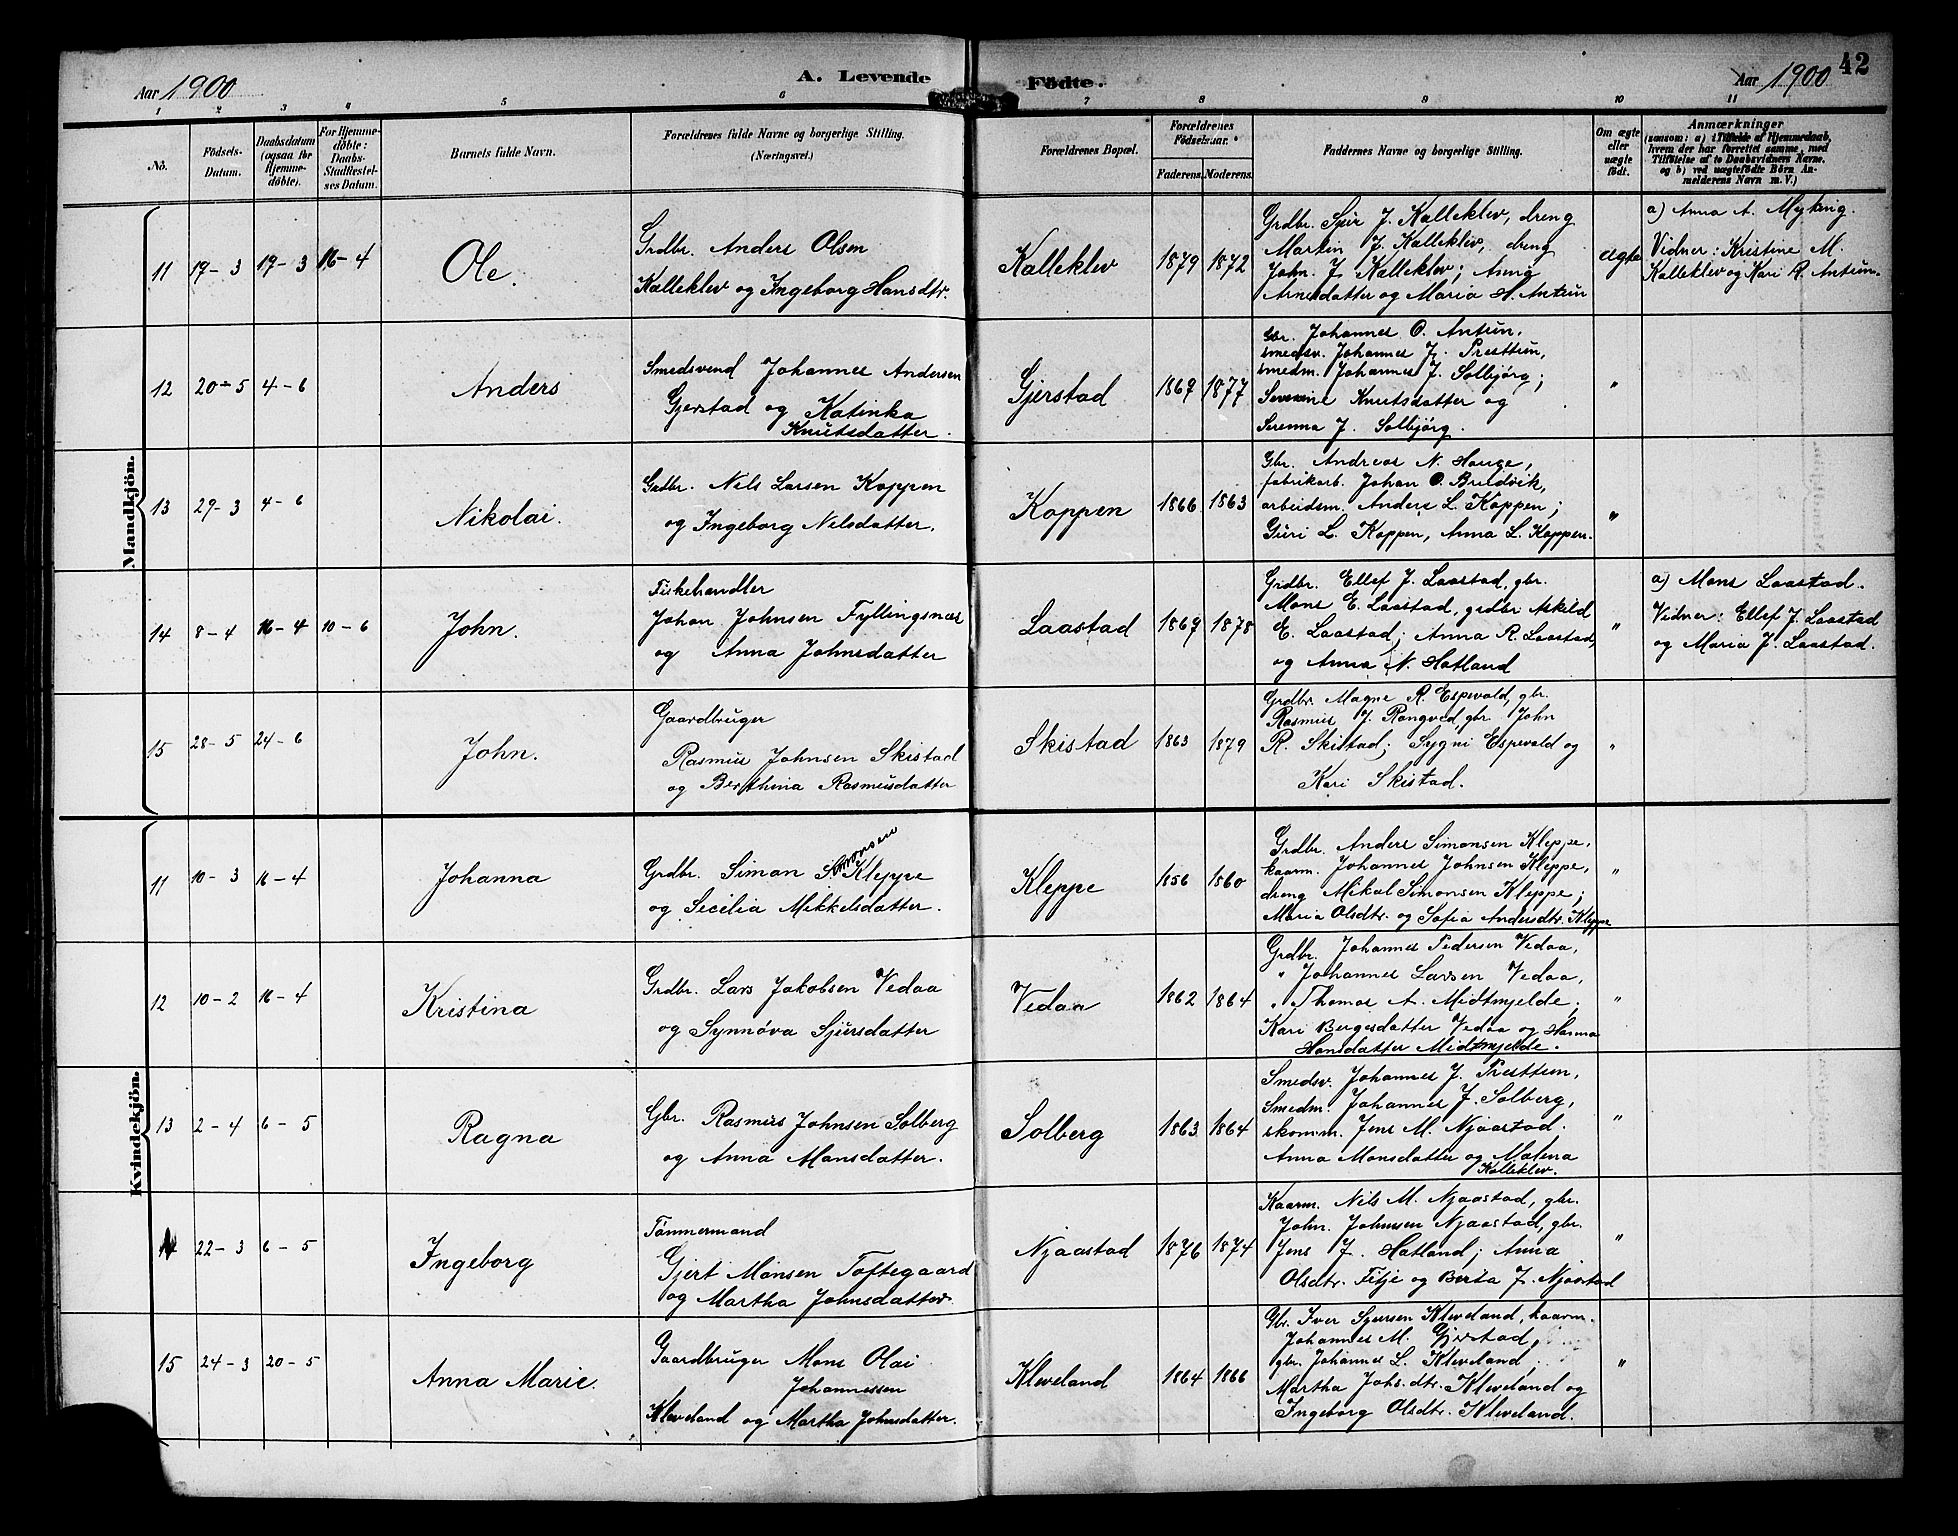 42
Aar 1900
A. Levende
Födte.
Aar 1900
1 2 3 4 5 6 7 8 9 10 11
No.
Födsels-
Datum.
Daabsdatum
(ogsaa for
Hjemme-
døbte).
For Hjemme-
døbte:
Daabs-
Stadfestel-
ses Datum.
Barnets fulde Navn.
Forældrenes fulde Navne og borgerlige Stilling.
(Næringsvei.)
Forældrenes Bopæl.
Forældrenes
Födselsaar.
Faderens. Moderens.
Faddernes Navne og borgerlige Stilling.
Om ægte
eller
uægte
födt.
Anmærkninger
(saasom: a) i Tilfælde af Hjemmedaab,
hvem der har forrettet samme, med
Tilføielse af to Daabsvidners Navne.
og b) ved uægtefödte Börn An-
melderens Navn m. V.)
Mandkjön.
11 19-3 19-3 16-4
Ole.
Grdbr. Anders Olsen
Kalleklev og Ingeborg Hansdtr.
Kalleklev
1879 1872
Grdbr. Sjur J. Kalleklev, dreng
Martin J. Kalleklev, dreng
John J. Kalleklev; Anna
Arnesdatter og Maria H. Antun
ægte
a) Anna A. Myking.
Vidner: Kristine M.
Kalleklev og Kari R. Antun.
12 20-5 4-6
Anders
Smedsvend Johannes Andersen
Gjerstad og Katinka
Knutsdatter.
Gjerstad
1869 1877
Gbr. Johannes O. Antun,
smedsv. Johannes J. Presttun,
smedm. Johannes J. Solbjörg;
Severine Knutsdatter og
Serenna J. Solbjörg.
"
13 29-3 4-6
Nikolai.
Gardbr. Nils Larsen Koppen
og Ingeborg Nilsdatter.
Koppen
1866 1863
Gbr. Andreas N. Hauge,
fabrikarb. Johan O. Bruvik,
arbeidsm. Anders L. Koppen;
Guri L. Koppen, Anna L. Koppen.
"
14 8-4 16-4 10-6
John.
Fiskehandler
Johan Johnsen Fyllingsnes
og Anna Johnsdatter
Laastad
1869 1878
Grdbr. Ellef J. Laastad, gbr.
Mons E. Laastad, grdbr Askild
E. Laastad; Anna R. Laastad,
og Anna N. Hatland
"
a) Mons Laastad.
Vidner: Ellef J. Laastad
og Maria J. Laastad.
15 28-5 24-6
John.
Gaardbruger
Rasmus Johnsen Skistad
og Berthina Rasmusdatter
Skistad
1863 1879
Grdbr. Magne R. Espevold, gbr.
Rasmus J. Rongved, gbr. John
R. Skistad; Sygni Espevold og
Kari Skistad.
"
Kvindekjön.
11 10-3 16-4
Johanna
Simonsen
Grdbr. Simon Kleppe
og Secilia Mikkelsdatter.
Kleppe
1856 1860
Grdbr. Anders Simonsen Kleppe,
kaarm. Johannes Johnsen Kleppe,
dreng Mikal Simonsen Kleppe;
Maria Olsdtr. og Sofia Andersdtr. Kleppe
"
12 10-2 16-4
Kristina
Grdbr. Lars Jakobsen Vedaa
og Synnöva Sjursdatter
Vedaa
1862 1864
Grdbr. Johannes Pedersen Vedaa,
" Johannes Larsen Vedaa,
" Thomas A. Midtmjelde;
Kari Bergesdatter Vedaa og Hanna
Hansdatter Midtmjelde.
"
13 2-4 6-5
Ragna
Gbr. Rasmus Johnsen Solberg
og Anna Monsdatter.
Solberg
1863 1864
Smedsv. Johannes J. Presttun,
Smedm. Johannes J. Solberg,
skom. Jens M. Njaastad.
Anna Monsdatter og Malena
Kalleklev.
"
14 22-3 6-5
Ingeborg
Tömmermand
Gjert Monsen Toftegaard
og Martha Johnsdatter.
Njaastad
1876 1874
Kaarm. Nils M. Njaastad, gbr.
John Johnsen Njaastad, gbr.
Jens J. Hatland; Anna
Olsdtr. Fitje og Berta J. Njaastad
"
15 24-3 20-5
Anna Marie.
Gaardbruger Mons Olai
Johannessen
Kleveland og Martha Johnsdatter.
Kleveland
1864 1866
Gbr. Iver Sjursen Kleveland, kaarm.
Johannes M. Gjerstad,
gbr. Johannes L. Kleveland;
Martha Johs.dtr. Kleveland og
Ingeborg Olsdtr. Kleveland.
"